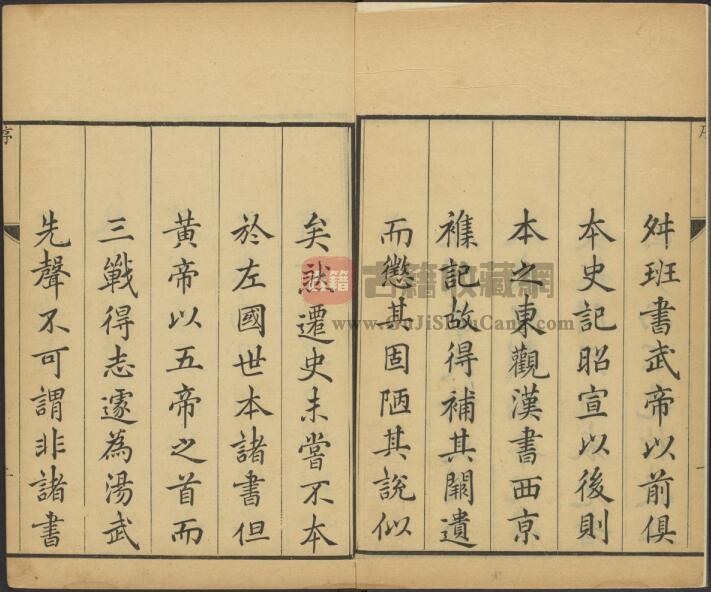 舛班書武帝以前俱
本史記昭宣以後則
本之東觀漢書西京
襍記故得補其闕遺
而懲其固陋其說似
矣然遷史未嘗不本
於左國世本諸書但
黃帝以五帝之首而
三戰得志遂為湯武
先聲不可謂非諸書
序
古籍收藏網
www.GuJiShouCang.com